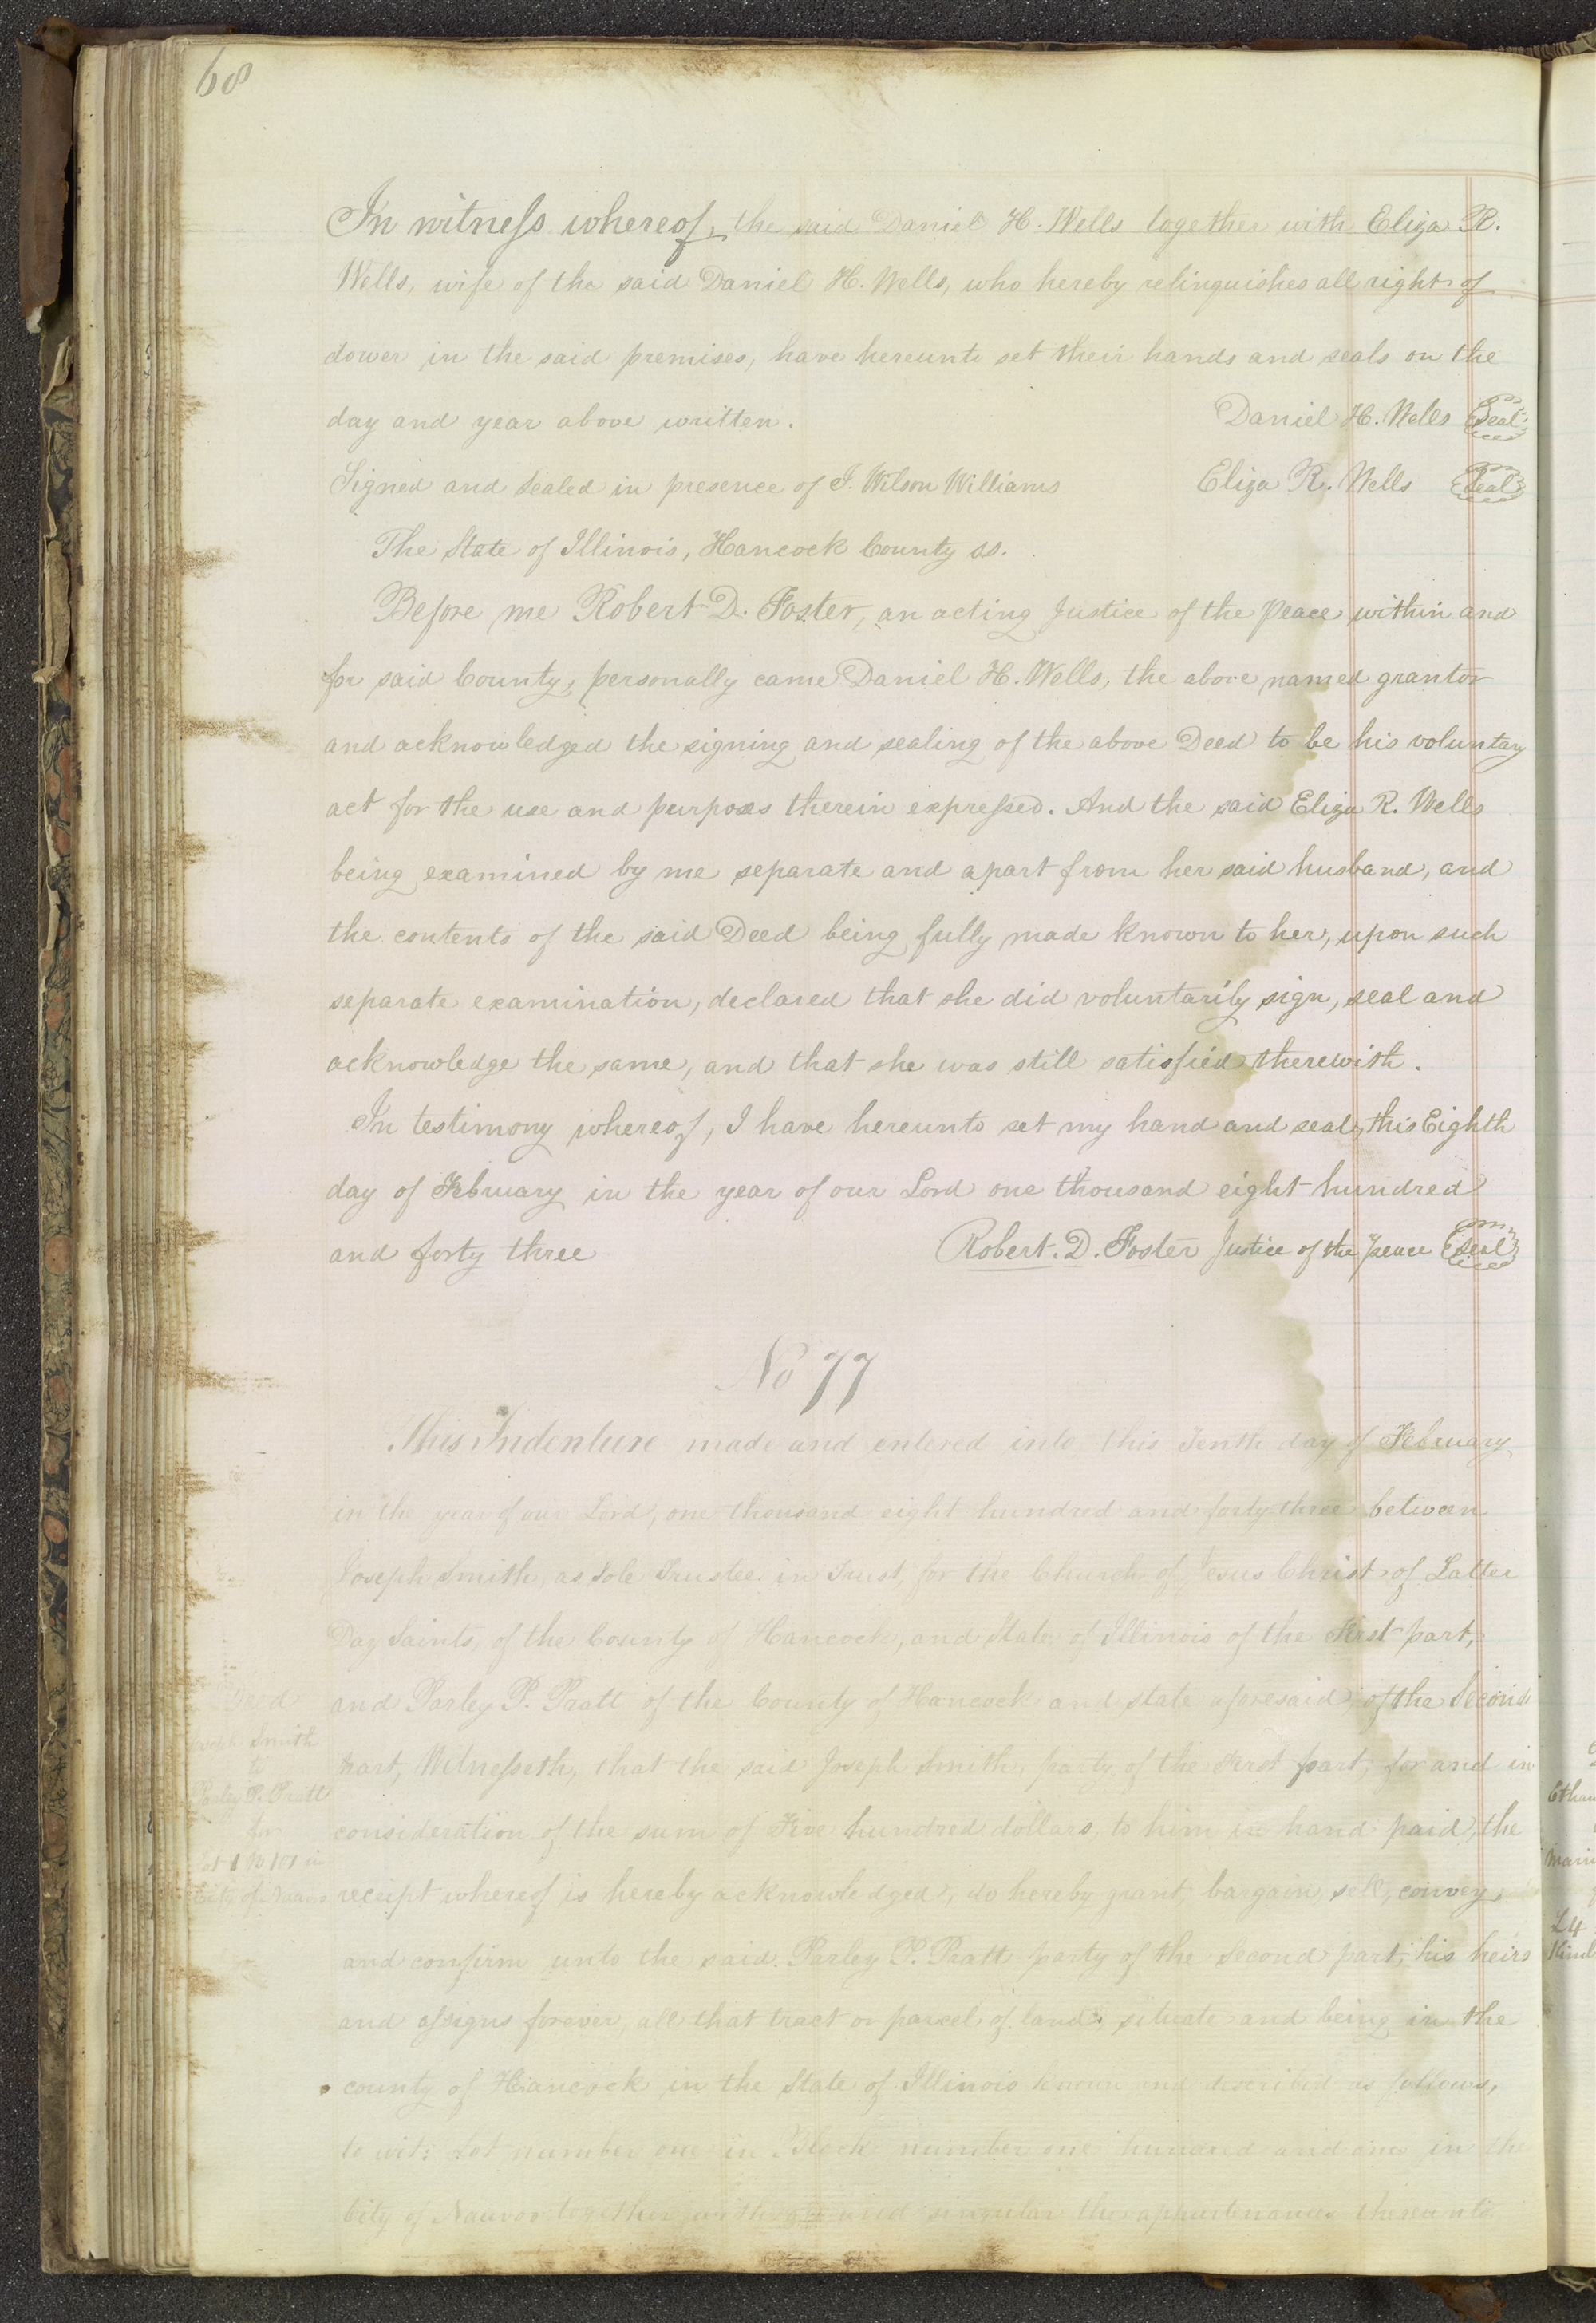 68
In witness whereof, the said Daniel H. Wells together with Eliza R.
Wells, wife of the said Daniel H. Wells, who hereby relinquishes all right of
dower in the said premises, have hereunto set their hands and seals on the
day and year above written. Daniel H. Wells Seal
Signed and Sealed in presence of J. Wilson Williams Eliza R. Wells Seal
The State of Illinois, Hancock County ss.
Before me Robert D. Foster, an acting Justice of the Peace within and
for said County, personally came Daniel H. Wells, the above named grantor
and acknowledged the signing and sealing of the above Deed to be his voluntary
act for the use and purposes therein expressed. And the said Eliza R. Wells
being examined by me separate and apart from her said husband, and
the contents of the said Deed being fully made known to her, upon such
separate examination, declared that she did voluntarily sign, seal and
acknowledge the same, and that she was still satisfied therewith.
In testimony whereof, I have hereunto set my hand and seal, this Eighth
day of February in the year of our Lord one thousand eight hundred
and forty three Robert. D. Foster Justice of the peace Seal
No 77
This Indenture made and entered into this Tenth day of February
in the year of our Lord, one thousand eight hundred and forty three between
Joseph Smith, as Sole Trustee in Trust for the Church of Jesus Christ of Latter
Day Saints, of the County of Hancock, and State of Illinois of the First part,
and Parley P. Pratt of the County of Hancock and State aforesaid, of the Second
part, Witnesseth, that the said Joseph Smith, party of the First part, for and in
consideration of the sum of Five hundred dollars, to him in hand paid, the
receipt whereof is hereby acknowledged, do hereby grant, bargain, sell, convey,
and confirm unto the said Parley P. Pratt party of the Second part, his heirs
and assigns forever, all that tract or parcel of land, situate and being in the
county of Hancock in the State of Illinois known and described as follows,
to wit: Lot number one in Block number one hundred and one in the
City of Nauvoo together with all and singular the appurtenances thereunto
Deed
Joseph Smith
to
Parley P. Pratt
for
Lot 1 B 101 in
City of Nauvoo
L4